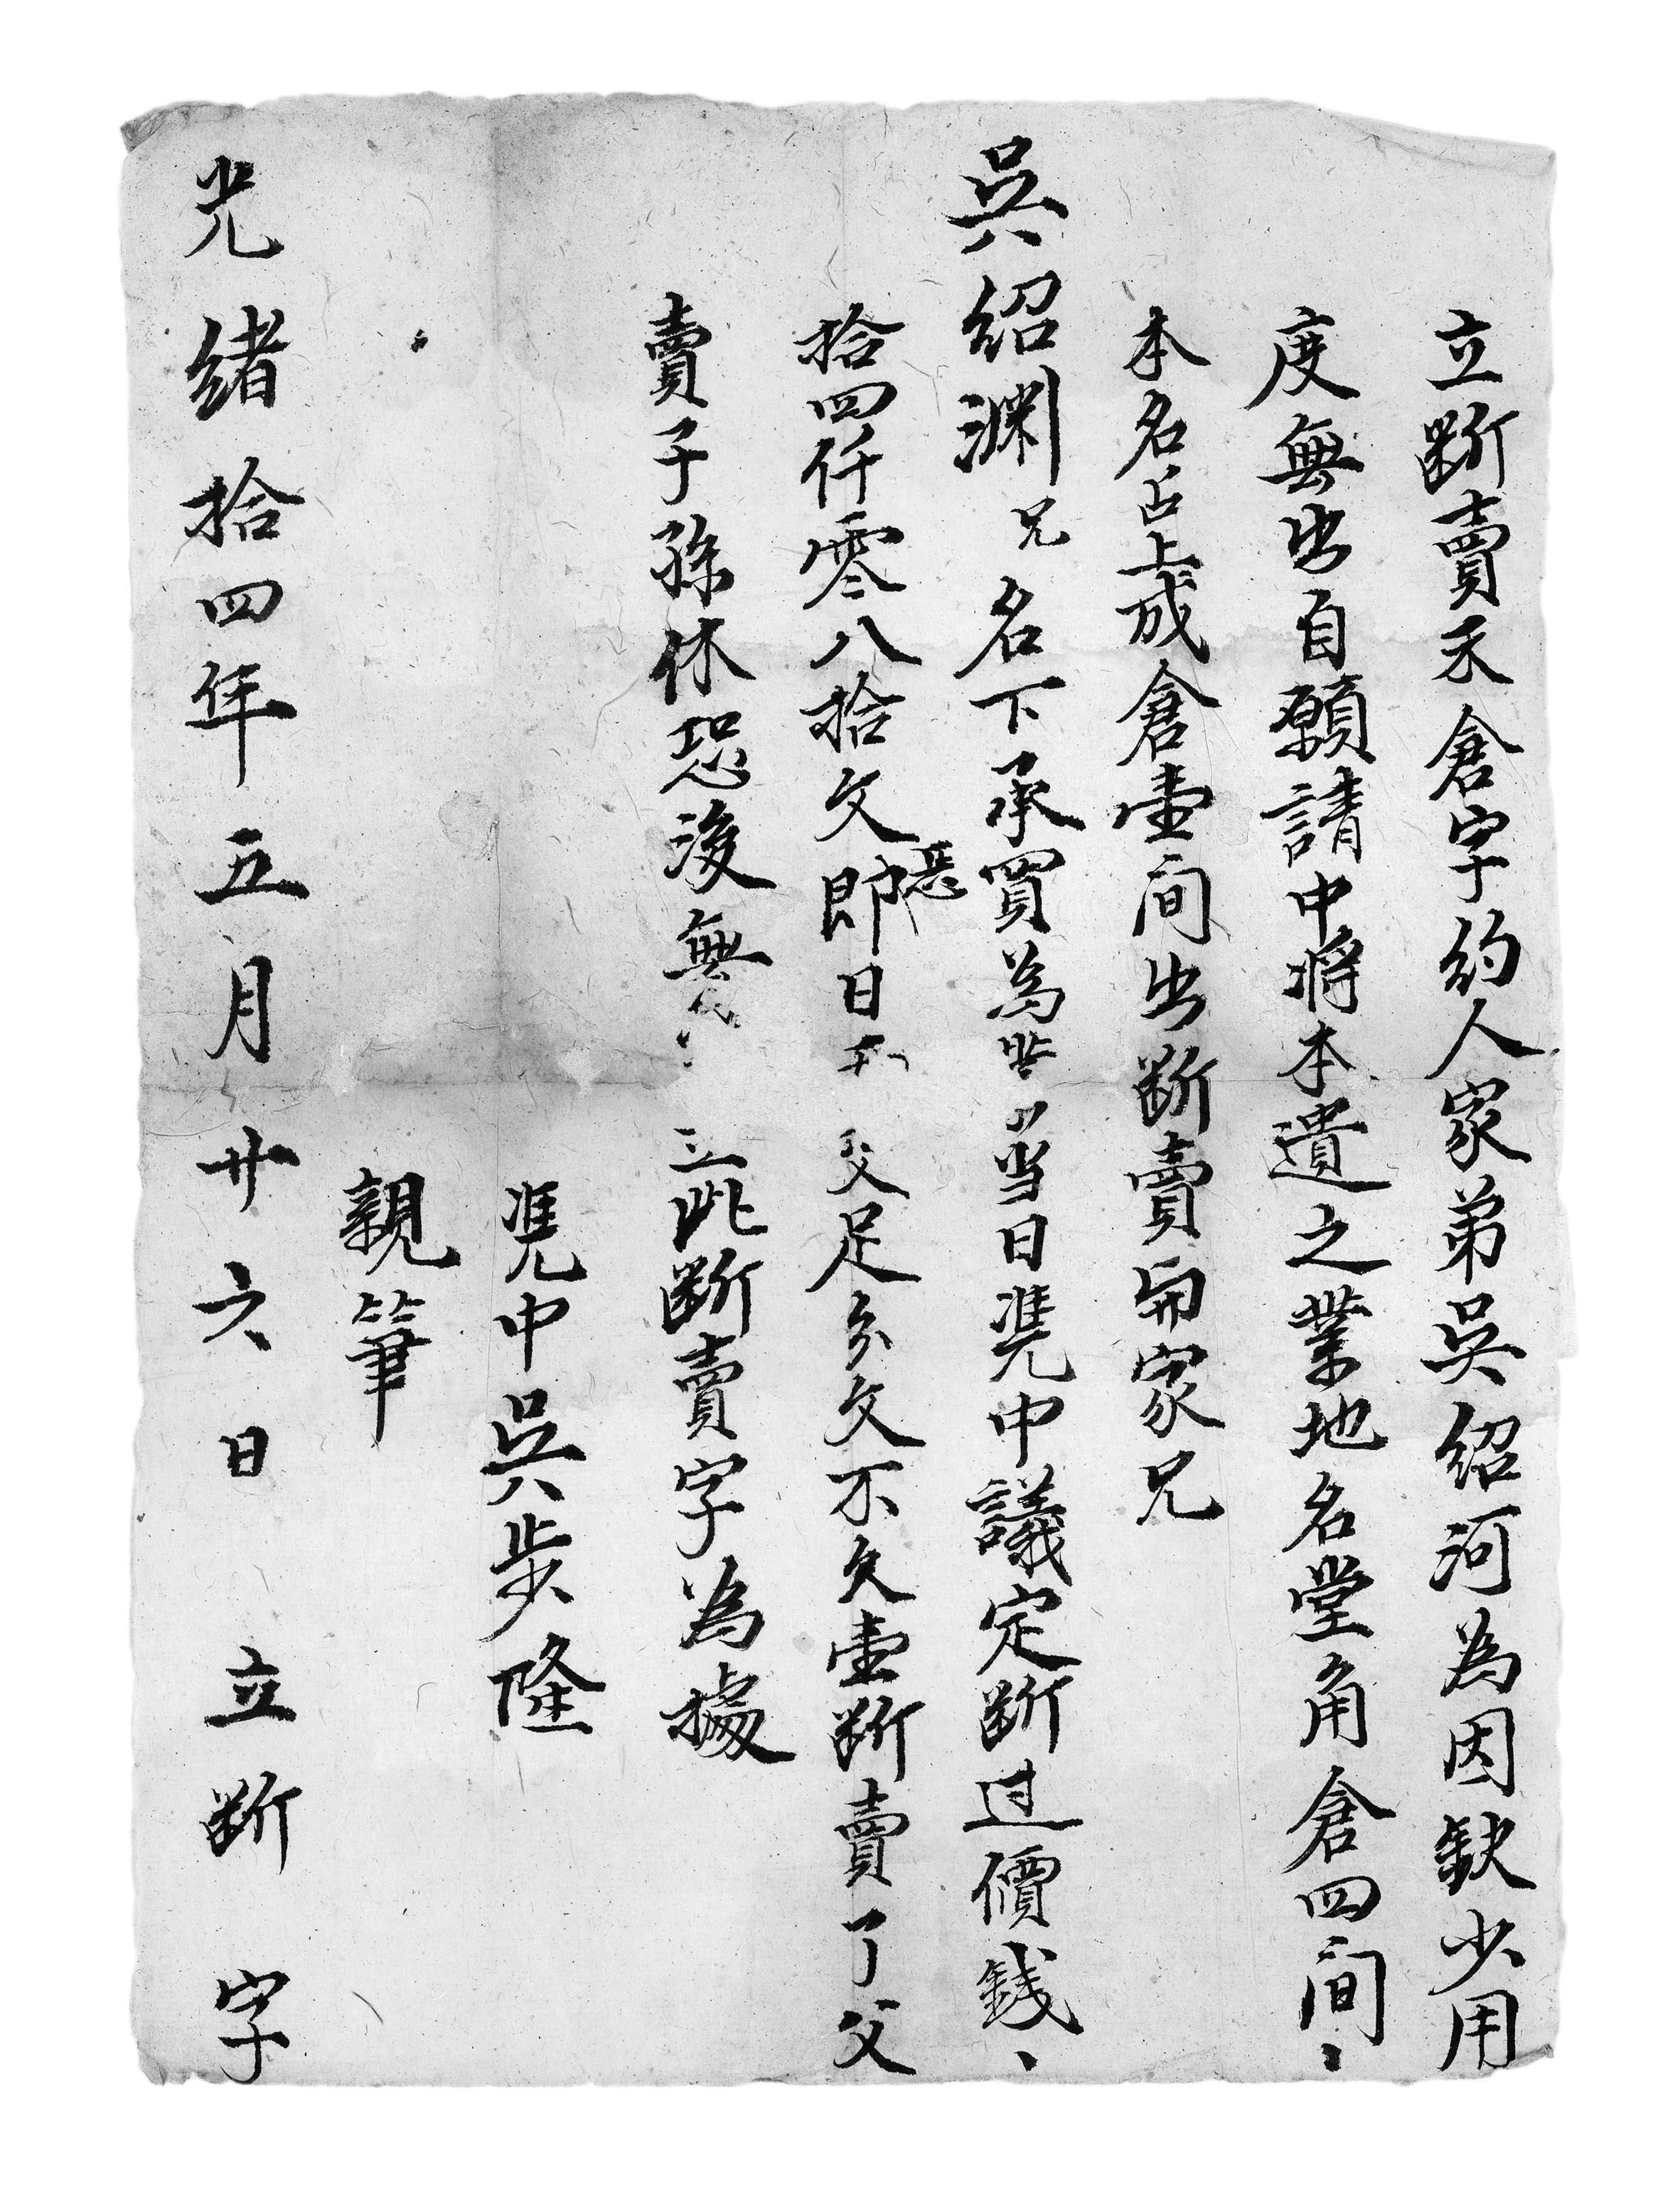 立断賣禾倉字約人家弟吳紹河為因缺少用
度無出自願請中將本遺之業地名堂角倉四间、
本名占上成倉壹间出断賣與家兄
吳紹渊兄名下承買為当日凭中議定断过價钱、
拾四仟零八拾文即日交足分文不欠壹断賣了父
賣子孫休恐後無立此断賣字為據
凭中吳步隆
親筆
光緒拾四年五月廿六日 立断字